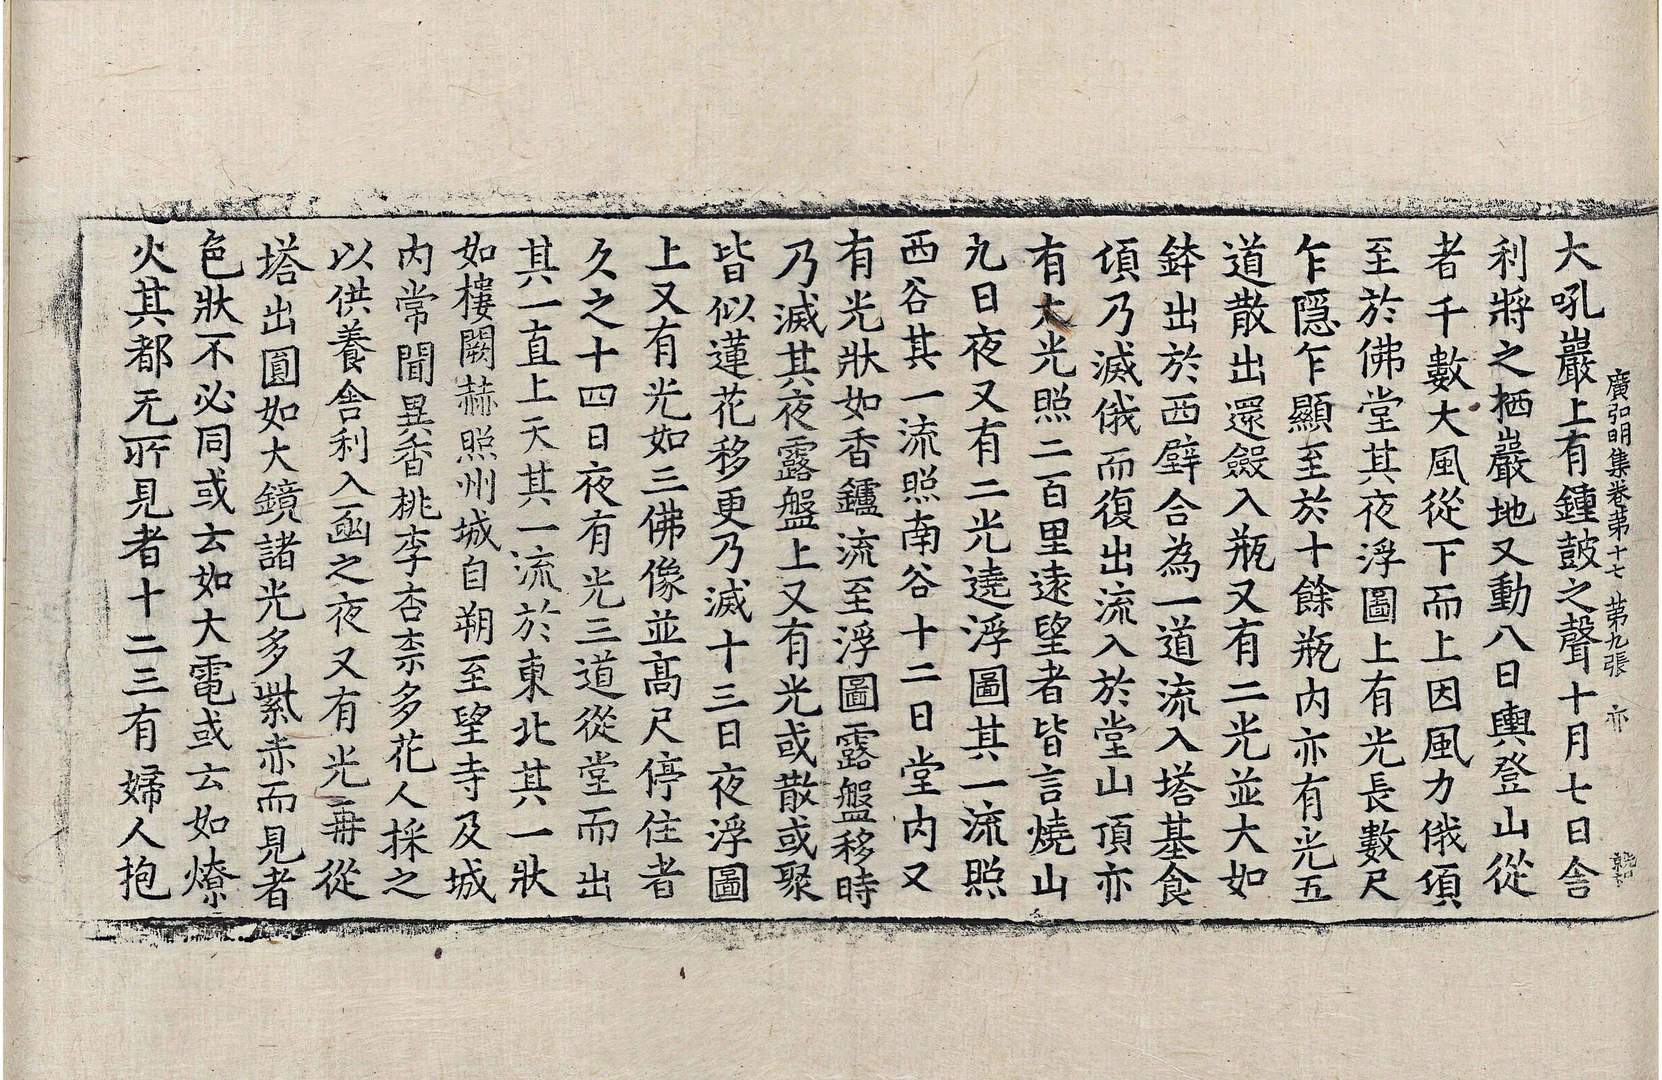 廣弘明集卷第十七 第九張 亦
大吼巖上有鍾鼓之聲十月七日舍
利將之栖巖地又動八日輿登山從
者千數大風從下而上因風力俄頃
至於佛堂其夜浮圖上有光長數尺
乍隱乍顯至於十餘瓶內亦有光五
道散出還斂入瓶又有二光並大如
鉢出於西壁合為一道流入塔基食
頃乃滅俄而復出流入於堂山頂亦
有大光照二百里遠望者皆言燒山
九日夜又有二光遶浮圖其一流照
西谷其一流照南谷十二日堂內又
有光狀如香鑪流至浮圖露盤移時
乃滅其夜露盤上又有光或散或聚
皆似蓮花移更乃滅十三日夜浮圖
上又有光如三佛像並高尺停住者
久之十四日夜有光三道從堂而出
其一直上天其一流於東北其一狀
如樓闕赫照州城自朔至望寺及城
內常聞異香桃李杏柰多花人採之
以供養舍利入函之夜又有光再從
塔出圓如大鏡諸光多紫赤而見者
色狀不必同或云如大電或云如燎
火其都无所見者十二三有婦人抱